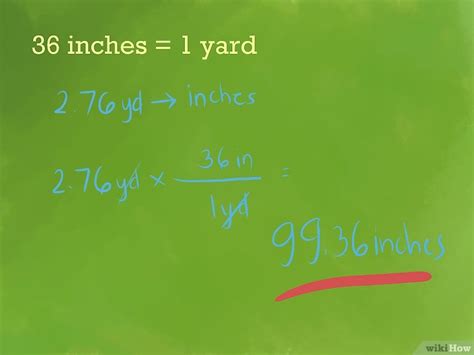 36 inches = 1 yard
2.76yd → inches
2.76yd × 36in / 1yd =
99.36inches
wikiHow